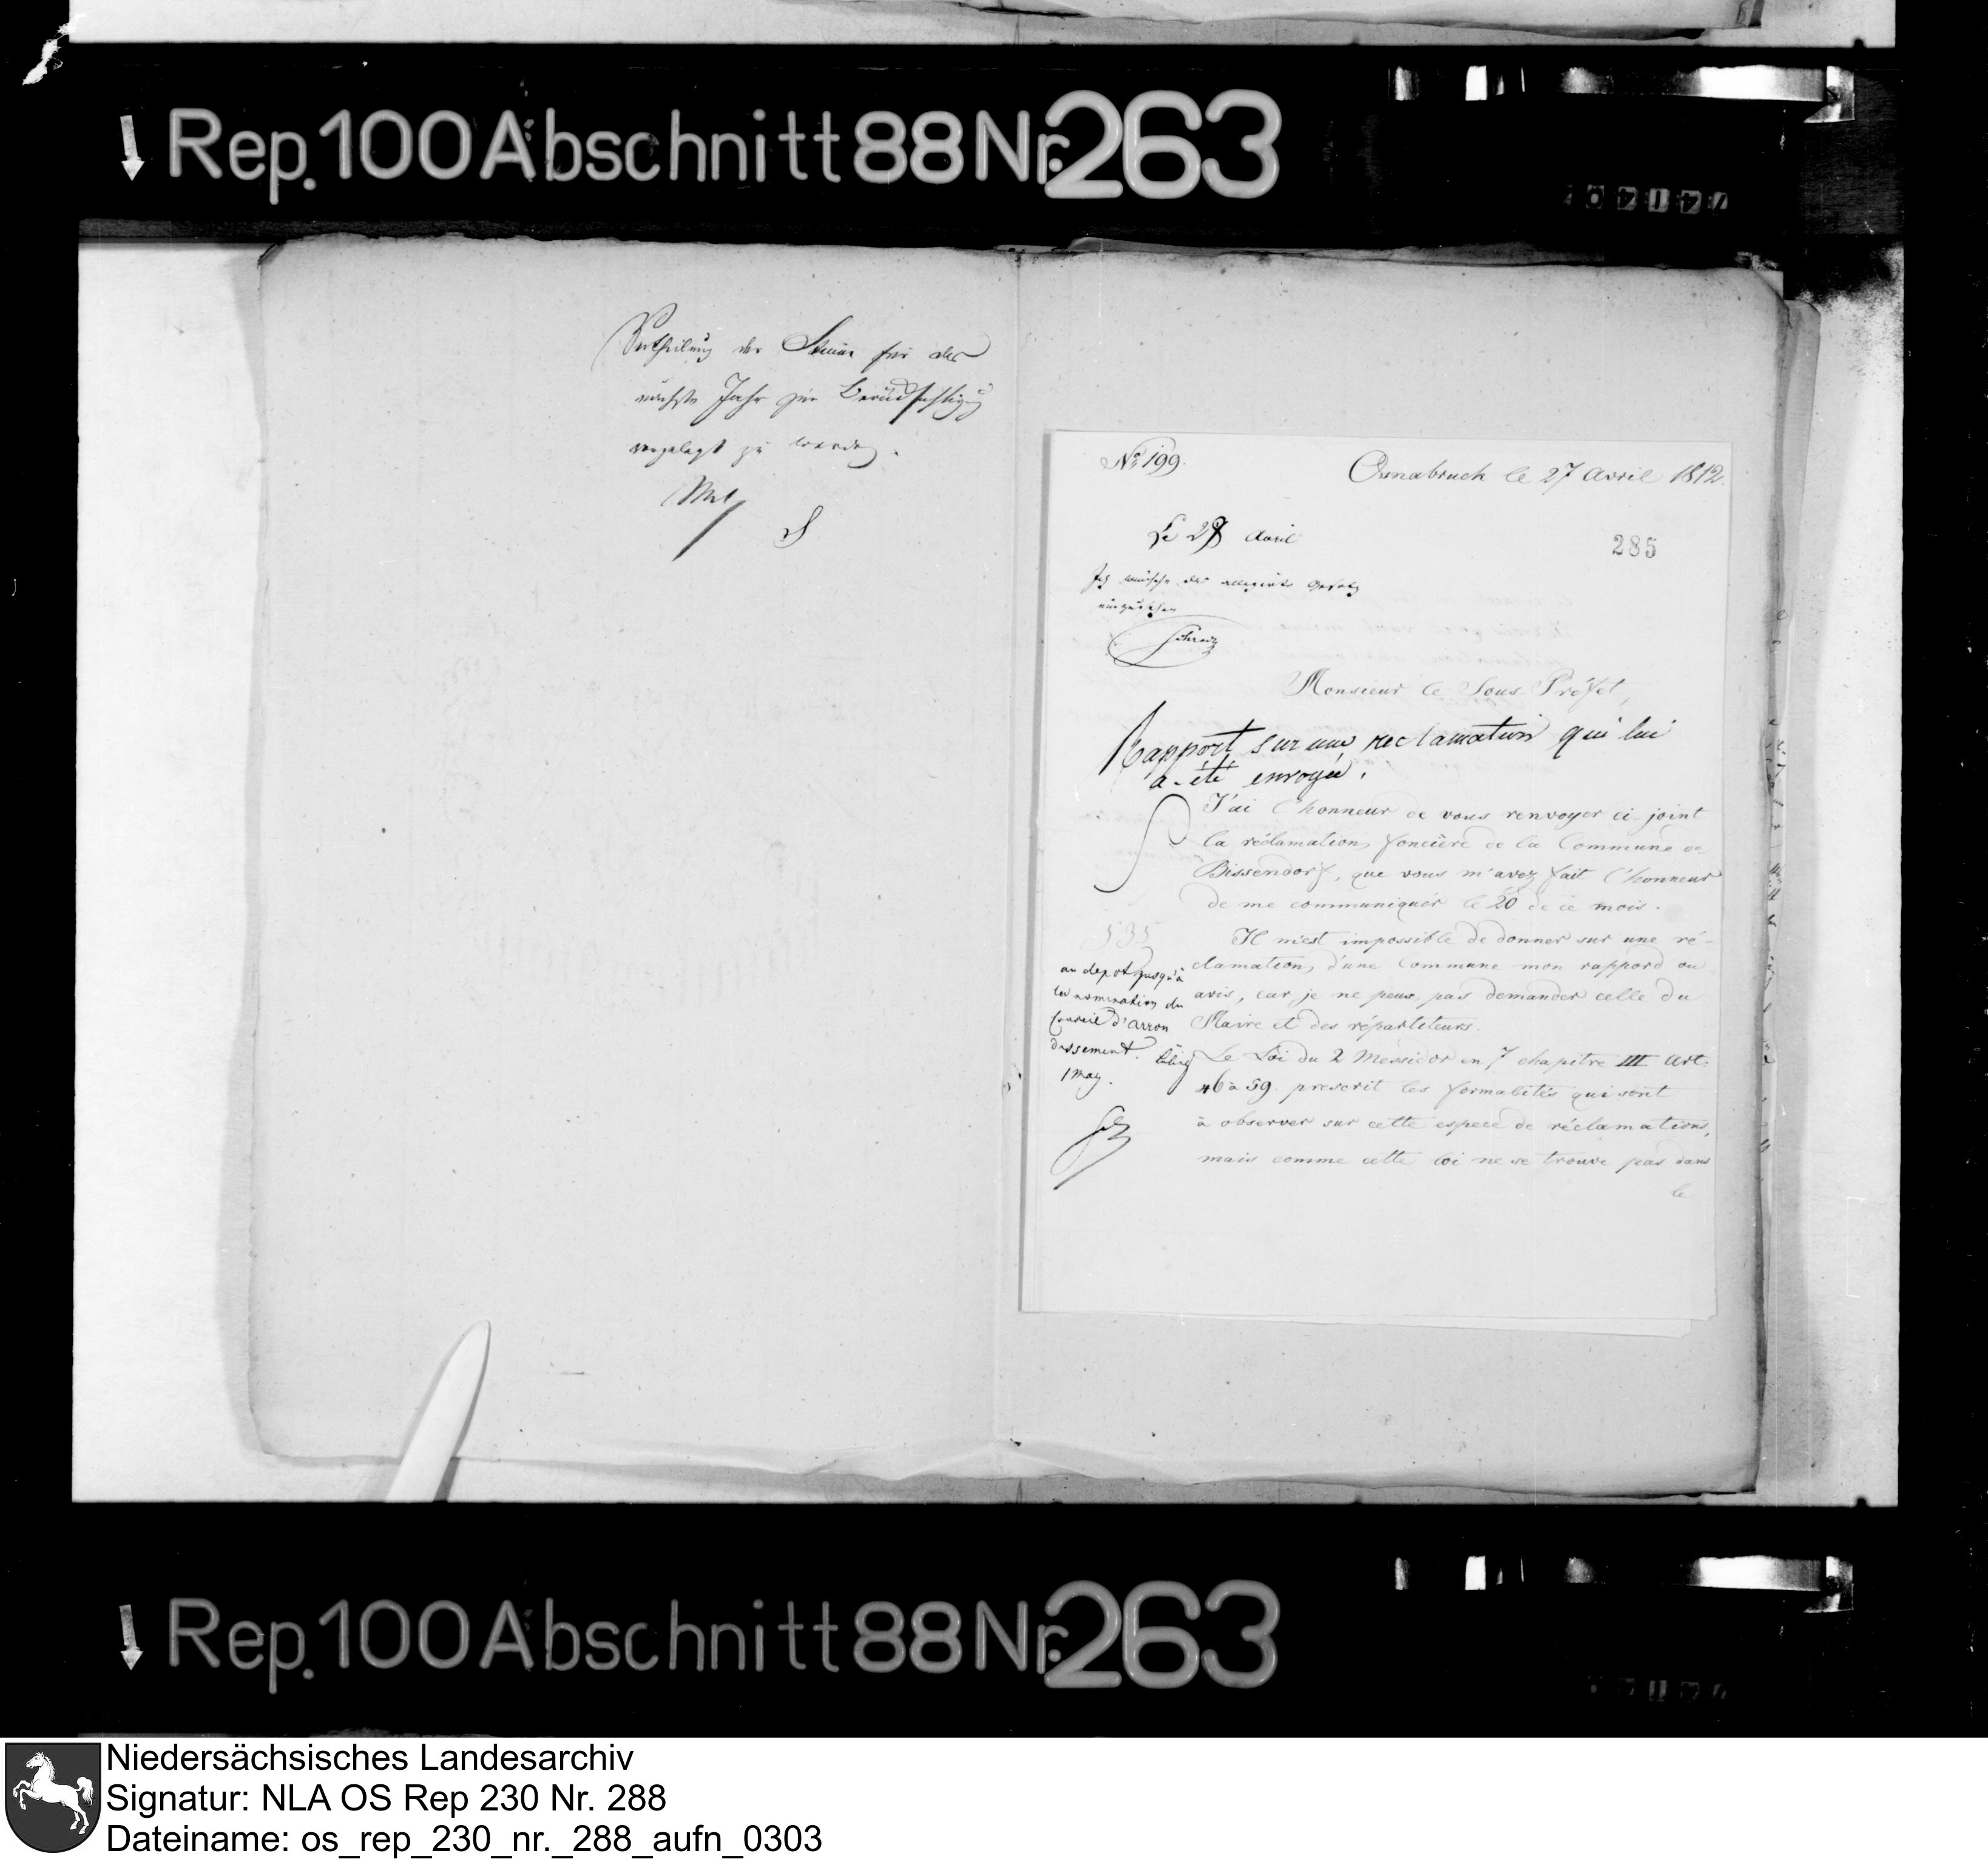 Rep. 100 Abschnitt 88 Nr. 263
Vertheilung der Steuer für das
nächste Jahr zur Berücksichtigung
vorgelegt zu werden.
No 199.
Osnabruck le 27 Avril 1812.
Le 28 Avril
285
Ich wünsche das allegirte Gesetz
einzusehen
Monsieur le Sous-Préfet,
Rapport sur une reclamation qui lui
a été envoyée.
J'ai l'honneur de vous renvoyer ci-joint
la réclamation foncière de la Commune de
Bissendorf, que vous m'avez fait l'honneur
de me communiquer le 20 de ce mois.
535
Il m'est impossible de donner sur une ré-
clamation, d'une Commune mon rapport ou
avis, car je ne peux pas demander celle du
Maire et des répartiteurs.
au depot jusqu'à
la nomination du
Conseil d'arron
dissement.
1 May.
Le Loi du 2 Messidor en 7 chapitre III Art.
46 à 59. prescrit les formalités qui sont
à observer sur cette espece de réclamations,
mais comme cette loi ne se trouve pas dans
le
Rep. 100 Abschnitt 88 Nr. 263
Niedersächsisches Landesarchiv
Signatur: NLA OS Rep 230 Nr. 288
Dateiname: os_rep_230_nr._288_aufn_0303